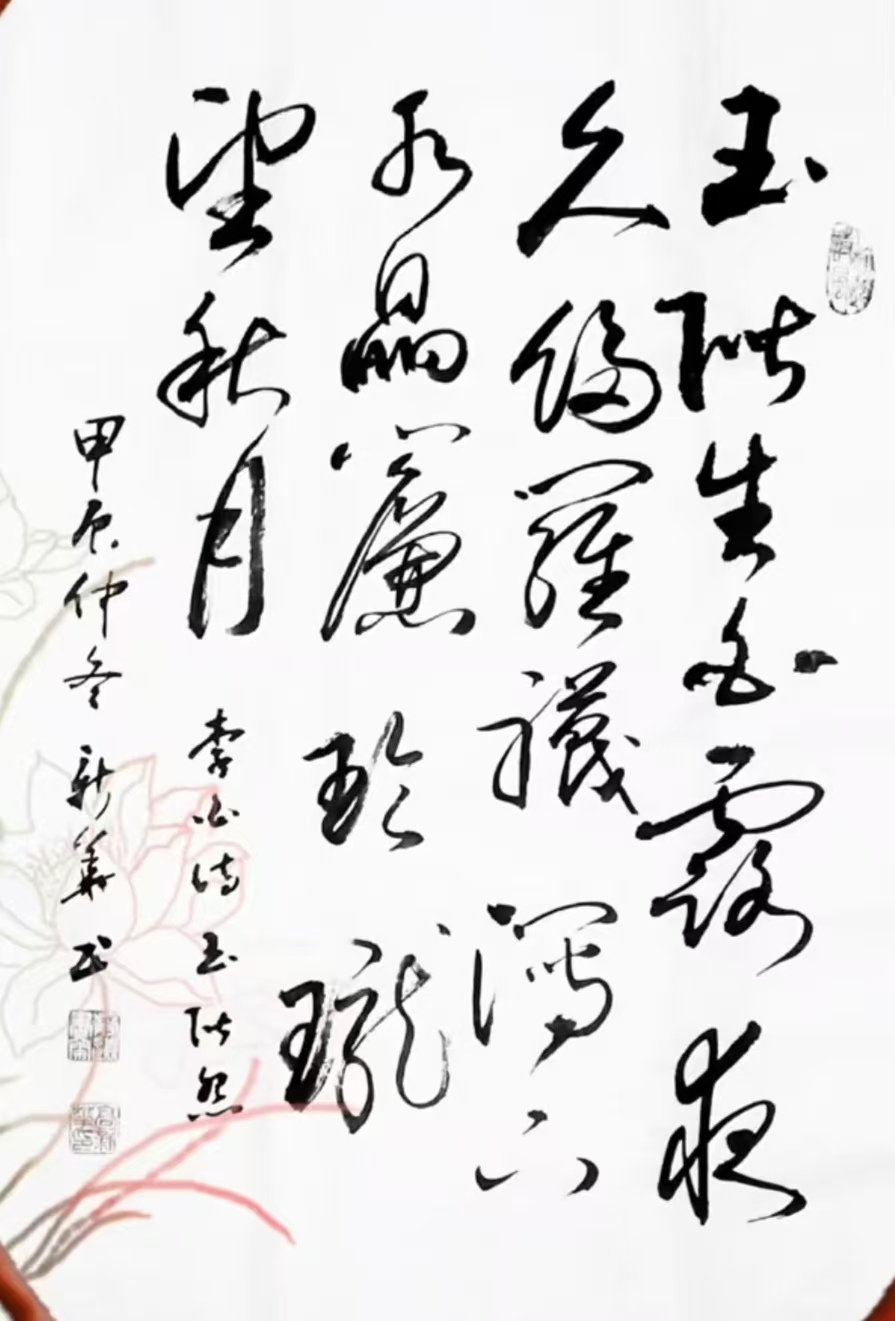 玉階生白露夜
久侵羅襪下
水晶簾玲瓏
望秋月
李白詩玉階怨
甲辰仲冬新華書